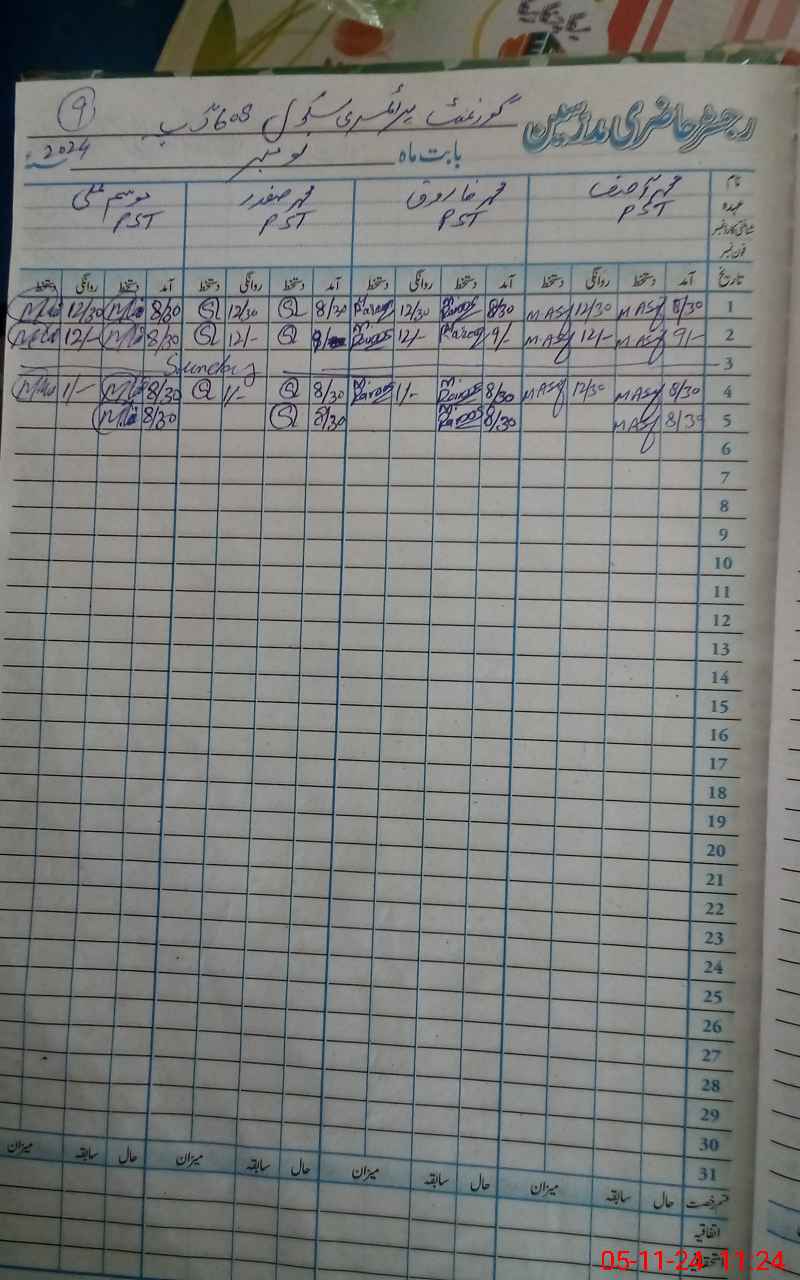 9
رجسٹر حاضری مدرسین گورنمنٹ پرائمری سکول 608 ٹی پی
بابت ماہ نومبر 2024 سنہ
نام محمد آصف محمد فاروق محمد صفدر موسم علی
عہدہ PST PST PST PST
شناختی کارڈ نمبر
فون نمبر
تاریخ آمد دستخط روانگی دستخط آمد دستخط روانگی دستخط آمد دستخط روانگی دستخط آمد دستخط روانگی دستخط
1 8/30 M ASif 12/30 M ASif 8/30 Farooq 12/30 Farooq 8/30 12/30 8/30 12/30
2 9/- M ASif 12/- M ASif 9/- Farooq 12/- Farooq 12/- 8/30 12/-
3 Sunday
4 8/30 M ASif 12/30 M ASif 8/30 Farooq 1/- Farooq 8/30 1/- 8/30 1/-
5 8/30 M ASif 8/30 Farooq 8/30 8/30
6
7
8
9
10
11
12
13
14
15
16
17
18
19
20
21
22
23
24
25
26
27
28
29
30
31
قسم رخصت حال سابقہ میزان حال سابقہ میزان حال سابقہ میزان حال سابقہ میزان
اتفاقیہ
05-11-24 11:24